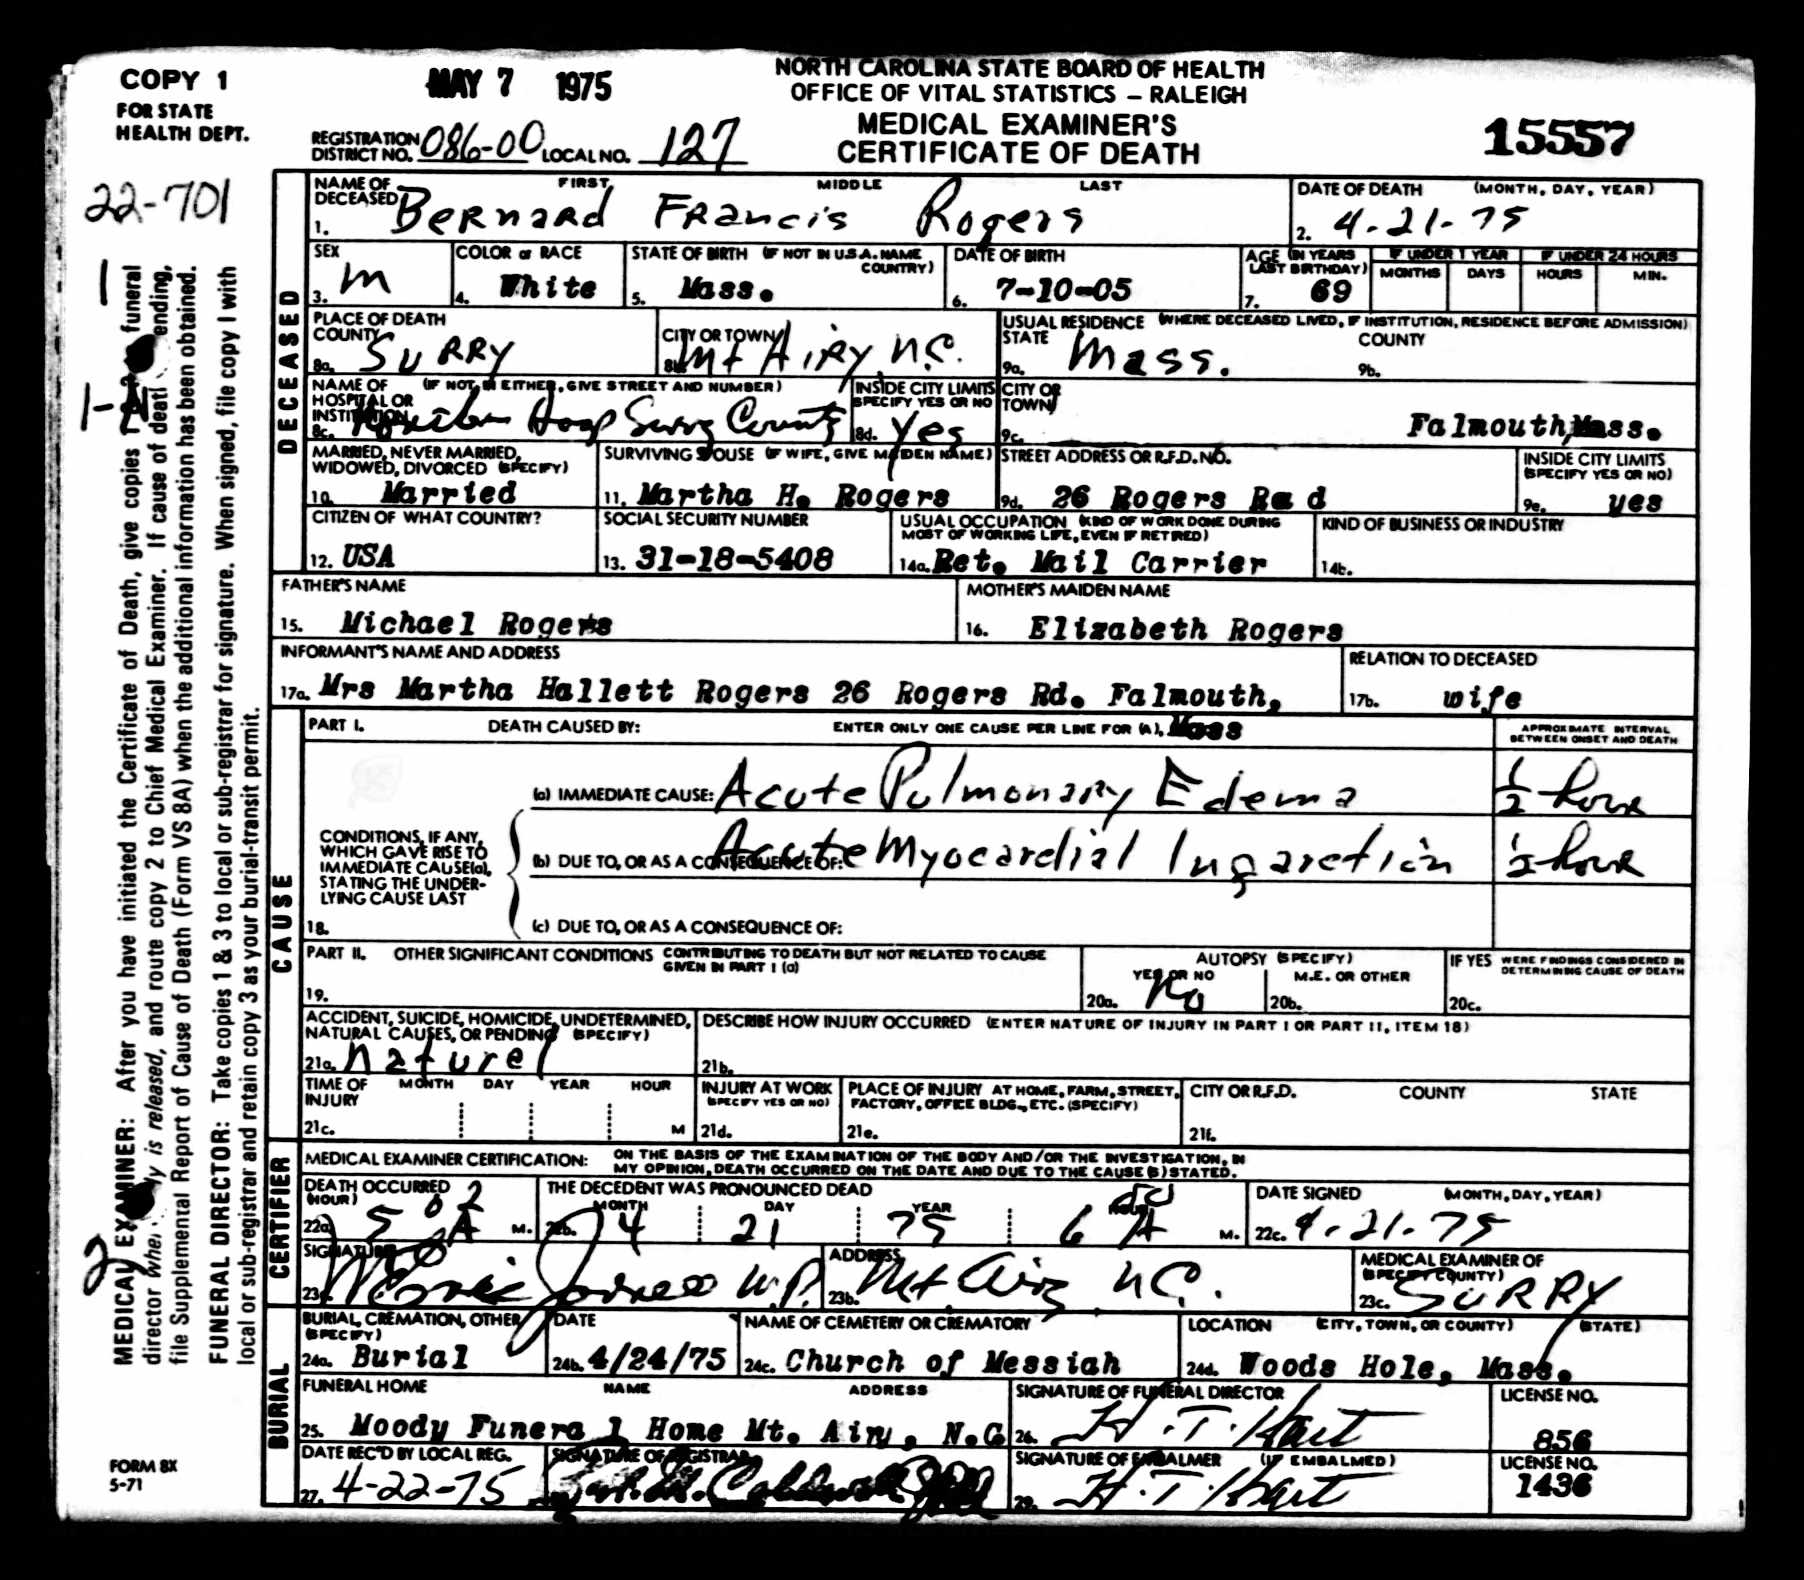 COPY 1
FOR STATE
HEALTH DEPT.
MAY 7 1975
NORTH CAROLINA STATE BOARD OF HEALTH
OFFICE OF VITAL STATISTICS – RALEIGH
MEDICAL EXAMINER'S
CERTIFICATE OF DEATH
REGISTRATION DISTRICT NO. 086-00 LOCAL NO. 127
15557
22-701
DECEASED
NAME OF DECEASED FIRST MIDDLE LAST
1. Bernard Francis Rogers
DATE OF DEATH (MONTH, DAY, YEAR)
2. 4-21-75
SEX
3. M
COLOR or RACE
4. White
STATE OF BIRTH (IF NOT IN U.S.A. NAME COUNTRY)
5. Mass.
DATE OF BIRTH
6. 7-10-05
AGE (IN YEARS LAST BIRTHDAY)
7. 69
IF UNDER 1 YEAR
MONTHS DAYS
IF UNDER 24 HOURS
HOURS MIN.
PLACE OF DEATH
COUNTY
8a. SURRY
CITY OR TOWN
8b. Mt AIRY, N.C.
USUAL RESIDENCE (WHERE DECEASED LIVED, IF INSTITUTION, RESIDENCE BEFORE ADMISSION)
STATE
9a. Mass.
COUNTY
9b.
NAME OF HOSPITAL OR INSTITUTION (IF NOT IN EITHER, GIVE STREET AND NUMBER)
8c. Hosp Surry County
INSIDE CITY LIMITS
(SPECIFY YES OR NO)
8d. Yes
CITY OR TOWN
9c. Falmouth, Mass.
MARRIED, NEVER MARRIED,
WIDOWED, DIVORCED (SPECIFY)
10. Married
SURVIVING SPOUSE (IF WIFE, GIVE MAIDEN NAME)
11. Martha H. Rogers
STREET ADDRESS OR R.F.D. NO.
9d. 26 Rogers Ro d
INSIDE CITY LIMITS
(SPECIFY YES OR NO)
9e. yes
CITIZEN OF WHAT COUNTRY?
12. USA
SOCIAL SECURITY NUMBER
13. 31-18-5408
USUAL OCCUPATION (KIND OF WORK DONE DURING
MOST OF WORKING LIFE, EVEN IF RETIRED)
14a. Ret. Mail Carrier
KIND OF BUSINESS OR INDUSTRY
14b.
FATHER'S NAME
15. Michael Rogers
MOTHER'S MAIDEN NAME
16. Elizabeth Rogers
INFORMANT'S NAME AND ADDRESS
17a. Mrs Martha Hallett Rogers 26 Rogers Rd. Falmouth, Mass
RELATION TO DECEASED
17b. wife
CAUSE
PART I. DEATH CAUSED BY: ENTER ONLY ONE CAUSE PER LINE FOR (a),
APPROXIMATE INTERVAL
BETWEEN ONSET AND DEATH
(a) IMMEDIATE CAUSE: Acute Pulmonary Edema ½ hour
CONDITIONS, IF ANY,
WHICH GAVE RISE TO
IMMEDIATE CAUSE(a),
STATING THE UNDER-
LYING CAUSE LAST
(b) DUE TO, OR AS A CONSEQUENCE OF: Acute Myocardial Infarction ½ hour
18.
(c) DUE TO, OR AS A CONSEQUENCE OF:
PART II. OTHER SIGNIFICANT CONDITIONS CONTRIBUTING TO DEATH BUT NOT RELATED TO CAUSE
GIVEN IN PART I (a)
19.
AUTOPSY (SPECIFY)
YES OR NO
20a. No
M.E. OR OTHER
20b.
IF YES WERE FINDINGS CONSIDERED IN
DETERMINING CAUSE OF DEATH
20c.
ACCIDENT, SUICIDE, HOMICIDE, UNDETERMINED,
NATURAL CAUSES, OR PENDING (SPECIFY)
21a. naturel
DESCRIBE HOW INJURY OCCURRED (ENTER NATURE OF INJURY IN PART I OR PART II, ITEM 18)
21b.
TIME OF INJURY MONTH DAY YEAR HOUR
21c. M
INJURY AT WORK
(SPECIFY YES OR NO)
21d.
PLACE OF INJURY AT HOME, FARM, STREET,
FACTORY, OFFICE BLDG., ETC. (SPECIFY)
21e.
CITY OR R.F.D. COUNTY STATE
21f.
CERTIFIER
MEDICAL EXAMINER CERTIFICATION: ON THE BASIS OF THE EXAMINATION OF THE BODY AND/OR THE INVESTIGATION, IN
MY OPINION, DEATH OCCURRED ON THE DATE AND DUE TO THE CAUSE(S) STATED.
DEATH OCCURRED
(HOUR)
22a. A M.
THE DECEDENT WAS PRONOUNCED DEAD
MONTH DAY YEAR HOUR
22b. 4 21 75 6 A M.
DATE SIGNED (MONTH, DAY, YEAR)
22c. 4-21-75
SIGNATURE
23a.
ADDRESS
23b. Mt. Airy N.C.
MEDICAL EXAMINER OF
(SPECIFY COUNTY)
23c. SURRY
BURIAL
BURIAL, CREMATION, OTHER
(SPECIFY)
24a. Burial
DATE
24b. 4/24/75
NAME OF CEMETERY OR CREMATORY
24c. Church of Messiah
LOCATION (CITY, TOWN, OR COUNTY) (STATE)
24d. Woods Hole, Mass.
FUNERAL HOME NAME ADDRESS
25. Moody Funeral Home Mt. Airy, N.C.
SIGNATURE OF FUNERAL DIRECTOR
26. H. T. Hart
LICENSE NO.
856
DATE REC'D BY LOCAL REG.
27. 4-22-75
SIGNATURE OF REGISTRAR
SIGNATURE OF EMBALMER (IF EMBALMED)
29. H. T. Hart
LICENSE NO.
1436
FORM 8X
5-71
MEDICAL EXAMINER: After you have initiated the Certificate of Death, give copies funeral
director when is released, and route copy 2 to Chief Medical Examiner. If cause of death ending,
file Supplemental Report of Cause of Death (Form VS 8A) when the additional information has been obtained.
FUNERAL DIRECTOR: Take copies 1 & 3 to local or sub-registrar for signature. When signed, file copy I with
local or sub-registrar and retain copy 3 as your burial-transit permit.